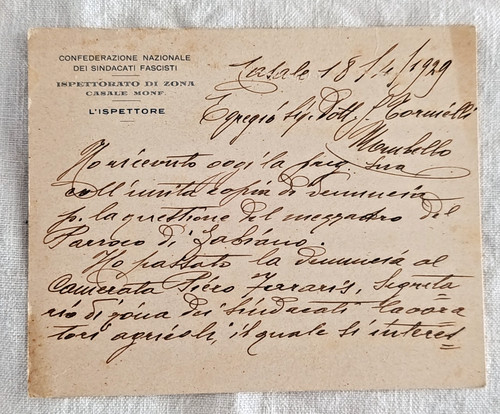 CONFEDERAZIONE NAZIONALE
DEI SINDACATI FASCISTI
ISPETTORATO DI ZONA
CASALE MONF.
L'ISPETTORE
Casale 18/4/1929
Egregio Sig. Dott.
Mombello
Ho ricevuto oggi la preg. sua
coll'unita copia di denuncia
p. la questione del mezzadro del
Parroco di Gabiano.
Ho passato la denuncia al
Camerata Piero Ferraris, Segreta
rio di zona dei Sindacati lavora
tori agricoli, il quale si interes=